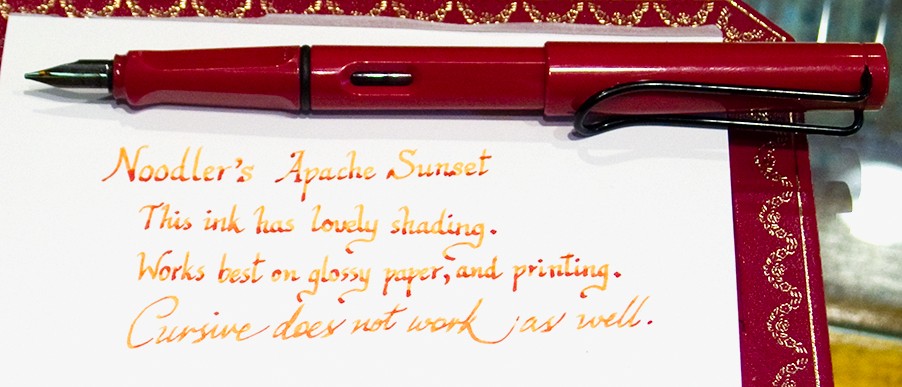 Noodler's Apache Sunset
This ink has lovely shading.
Works best on glossy paper, and printing.
Cursive does not work as well.